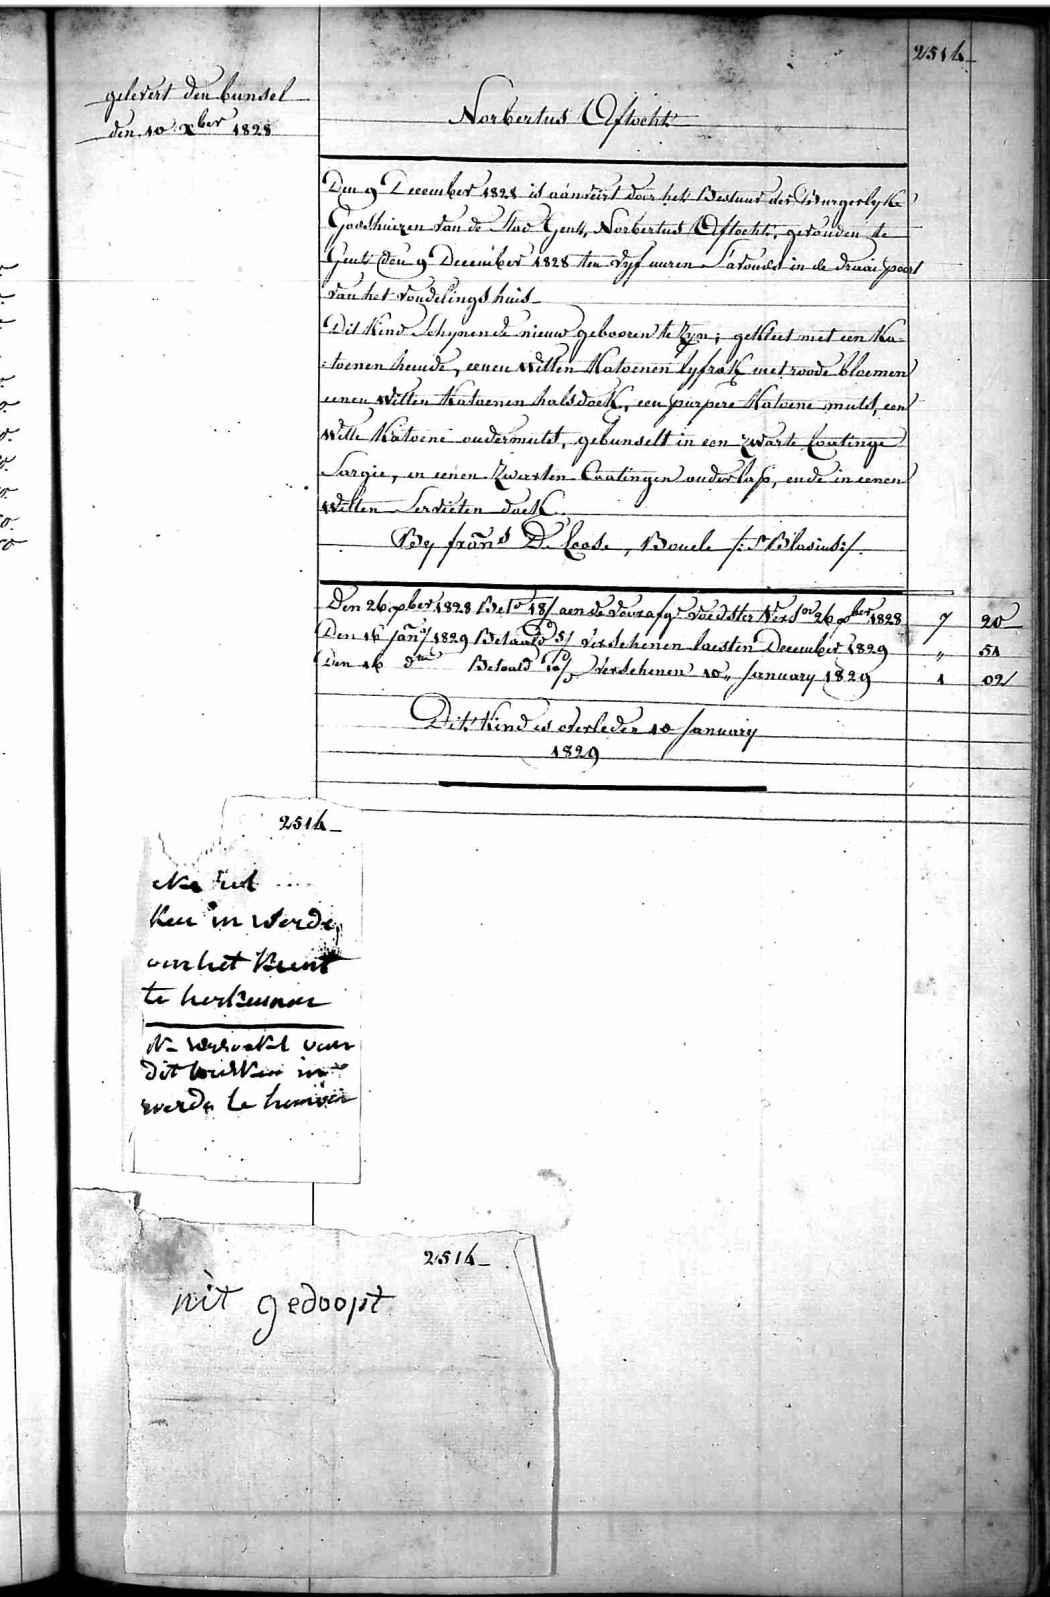 2514
gelevert den bunsel
den 10 Xber 1828
Norbertus Aftocht
Den 9 December 1828 is aanveirt door het Bestuur der Burgerlyke
Godshuizen van de Stad Gent, Norbertus Aftocht, gevonden te
Gent den 9 December 1828 ten vyf uuren s'avonds in de draai poort
van het vondelings huis
Dit kind schynende nieuw gebooren te zyn; gekleet met een ka-
toenen hemde, eenen witten katoenen lyfrok met roode bloemen
eenen witten katoenen halsdoek, een purpere katoene muts, een
witte katoene ondermuts, gebunselt in een zwarte Coatinge
Sargie, en eenen zwarten Coatingen onderlap, ende in eenen
witten servieten doek.
By frans De Loose, Boucle /: St Blasius :/
Den 26 Xber 1828 Bet. 18/ aen de voedster Vers. 26 Xber 1828 7 20
Den 16 Jany 1829 Betaald 5/ verschenen laesten December 1829 " 51
Den 16 dto Betaald 10/ verschenen 10 January 1829 1 02
Dit kind is overleden 10 January
1829
2514
in werde
om het kint
te herkennen
van
dit in
werde te
2514
nit gedoopt